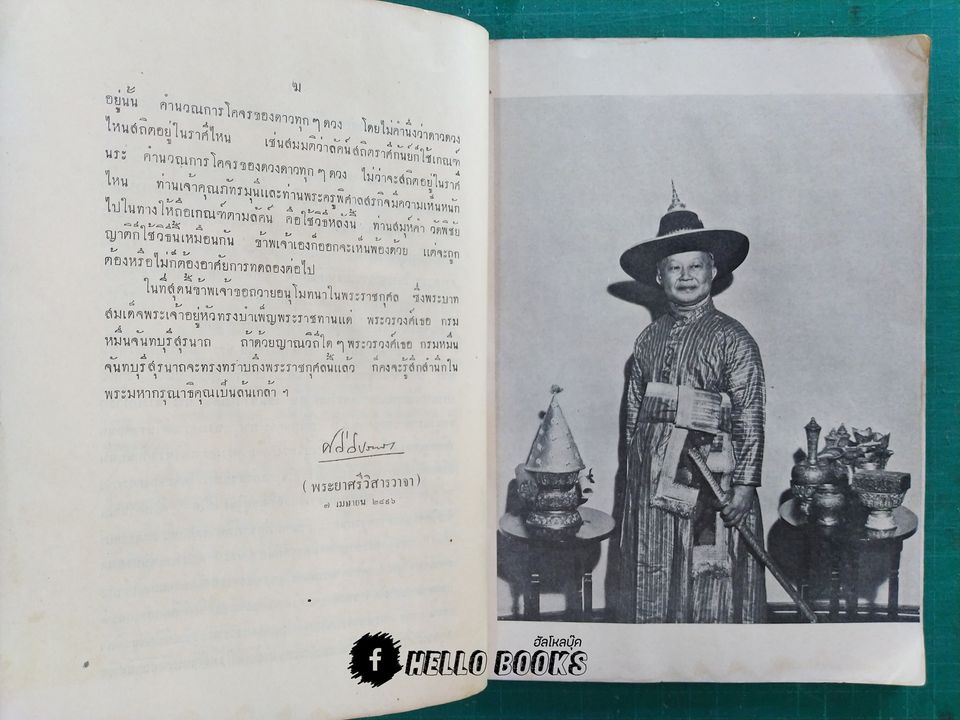 ฆ
อยู่นั้น คำนวณการโคจรของดาวทุกๆดวง โดยไม่คำนึงว่าดาวดวง
ไหนสถิตอยู่ในราศีไหน เช่นสมมติว่าลัคน์สถิตราศีกันย์ก็ใช้เกณฑ์
นระ คำนวณการโคจรของดวงดาวทุกๆดวง ไม่ว่าจะสถิตอยู่ในราศี
ไหน ท่านเจ้าคุณภัทรมุนีและท่านพระครูพิศาลสรกิจมีความเห็นหนัก
ไปในทางให้ถือเกณฑ์ตามลัคน์ คือใช้วิธีหลังนี้ ท่านสมุห์คำ วัดพิชัย
ญาติก็ใช้วิธีนี้เหมือนกัน ข้าพเจ้าเองก็ออกจะเห็นพ้องด้วย แต่จะถูก
ต้องหรือไม่ก็ต้องอาศัยการทดลองต่อไป
ในที่สุดนี้ข้าพเจ้าขอถวายอนุโมทนาในพระราชกุศล ซึ่งพระบาท
สมเด็จพระเจ้าอยู่หัวทรงบำเพ็ญพระราชทานแด่ พระวรวงศ์เธอ กรม
หมื่นจันทบุรีสุรนาถ ถ้าด้วยญาณวิถีใดๆพระวรวงศ์เธอ กรมหมื่น
จันทบุรีสุรนาถจะทรงทราบถึงพระราชกุศลนี้แล้ว ก็คงจะรู้สึกสำนึกใน
พระมหากรุณาธิคุณเป็นล้นเกล้า ฯ
(พระยาศรีวิสารวาจา)
๗ เมษายน ๒๔๙๖
f HELLO BOOKS
ฮัลโหลบุ๊ค